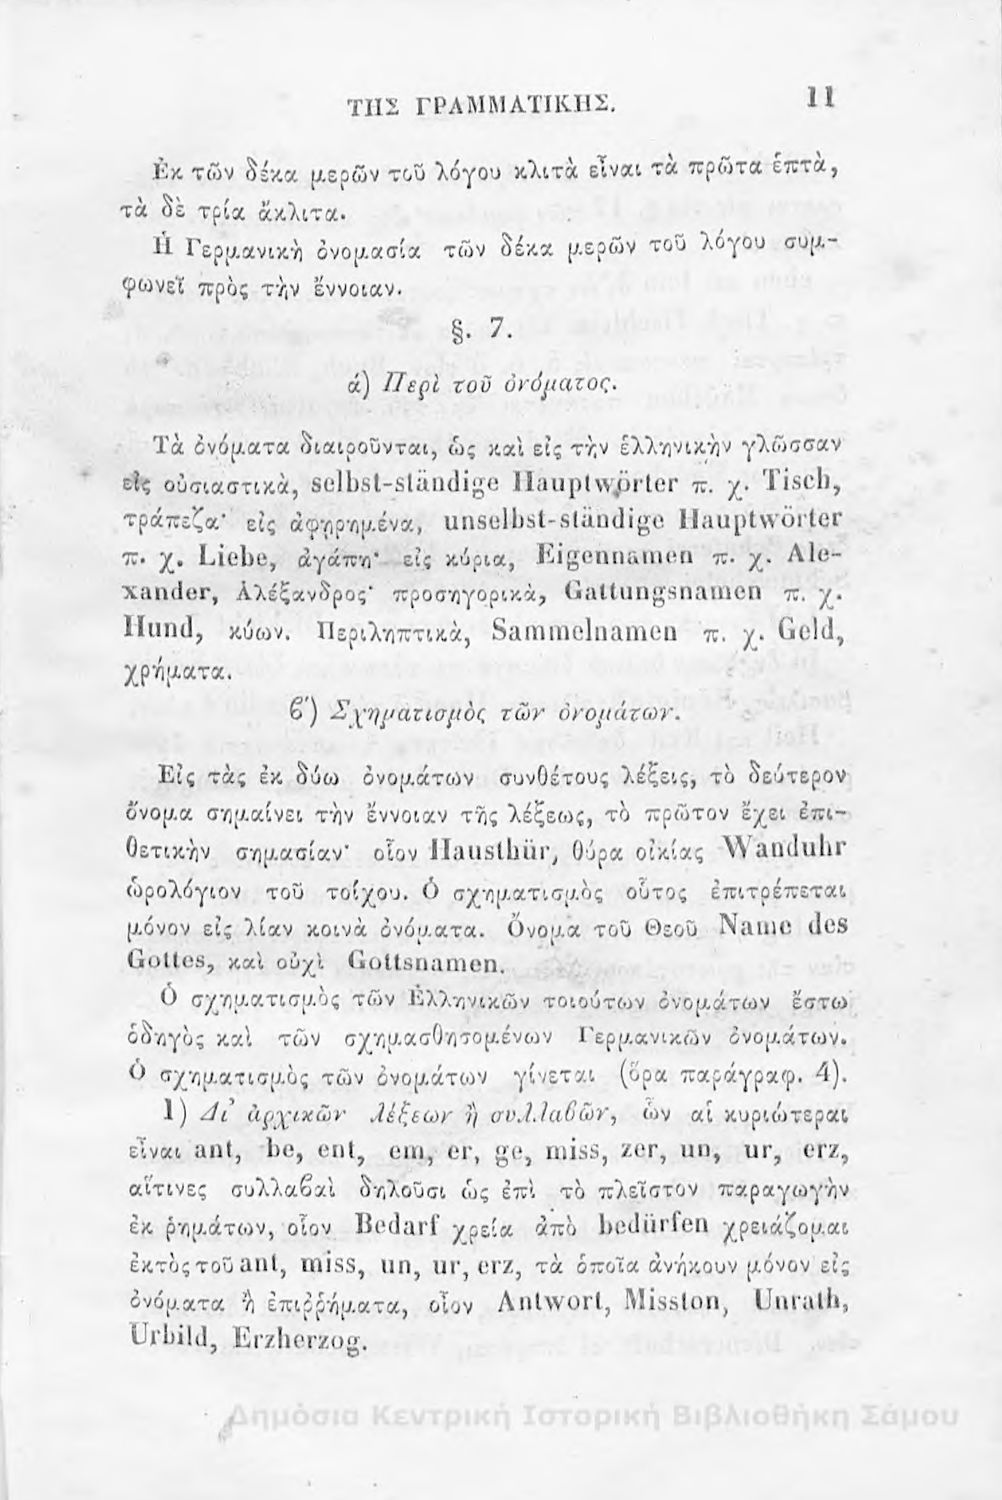 ΤΗΣ ΓΡΑΜΜΑΤΙΚΗΣ. 11
Ἐκ τῶν δέκα μερῶν τοῦ λόγου κλιτὰ εἶναι τὰ πρῶτα ἑπτὰ,
τὰ δὲ τρία ἄκλιτα.
Ἡ Γερμανικὴ ὀνομασία τῶν δέκα μερῶν τοῦ λόγου συμ-
φωνεῖ πρὸς τὴν ἔννοιαν.
§. 7.
ά) Περὶ τοῦ ὀνόματος.
Τὰ ὀνόματα διαιροῦνται, ὡς καὶ εἰς τὴν ἑλληνικὴν γλῶσσαν
εἰς οὐσιαστικὰ, selbst-ständige Hauptwörter π. χ. Tisch,
τράπεζα· εἰς ἀφῃρημένα, unselbst-ständige Hauptwörter
π. χ. Liebe, ἀγάπη· εἰς κύρια, Eigennamen π. χ. Ale-
xander, Ἀλέξανδρος· προσηγορικὰ, Gattungsnamen π. χ.
Hund, κύων. Περιληπτικὰ, Sammelnamen π. χ. Geld,
χρήματα.
ϐ') Σχηματισμὸς τῶν ὀνομάτων.
Εἰς τὰς ἐκ δύω ὀνομάτων συνθέτους λέξεις, τὸ δεύτερον
ὄνομα σημαίνει τὴν ἔννοιαν τῆς λέξεως, τὸ πρῶτον ἔχει ἐπι-
θετικὴν σημασίαν· οἷον Hausthür, θύρα οἰκίας Wanduhr
ὡρολόγιον τοῦ τοίχου. Ὁ σχηματισμὸς οὗτος ἐπιτρέπεται
μόνον εἰς λίαν κοινὰ ὀνόματα. Ὄνομα τοῦ Θεοῦ Name des
Gottes, καὶ οὐχὶ Gottsnamen.
Ὁ σχηματισμὸς τῶν Ἑλληνικῶν τοιούτων ὀνομάτων ἔστω
ὁδηγὸς καὶ τῶν σχημασθησομένων Γερμανικῶν ὀνομάτων.
Ὁ σχηματισμὸς τῶν ὀνομάτων γίνεται (ὅρα παράγραφ. 4).
1) Δι' ἀρχικῶν λέξεων ἢ συλλαϐῶν, ὧν αἱ κυριώτεραι
εἶναι ant, be, ent, em, er, ge, miss, zer, un, ur, erz,
αἵτινες συλλαϐαὶ δηλοῦσι ὡς ἐπὶ τὸ πλεῖστον παραγωγὴν
ἐκ ῥημάτων, οἷον Bedarf χρεία ἀπὸ bedürfen χρειάζομαι
ἐκτὸς τοῦ ant, miss, un, ur, erz, τὰ ὁποῖα ἀνήκουν μόνον εἰς
ὀνόματα ἢ ἐπιῤῥήματα, οἷον Antwort, Misston, Unrath,
Urbild, Erzherzog.
Δημόσια Κεντρική Ιστορική Βιβλιοθήκη Σάμου